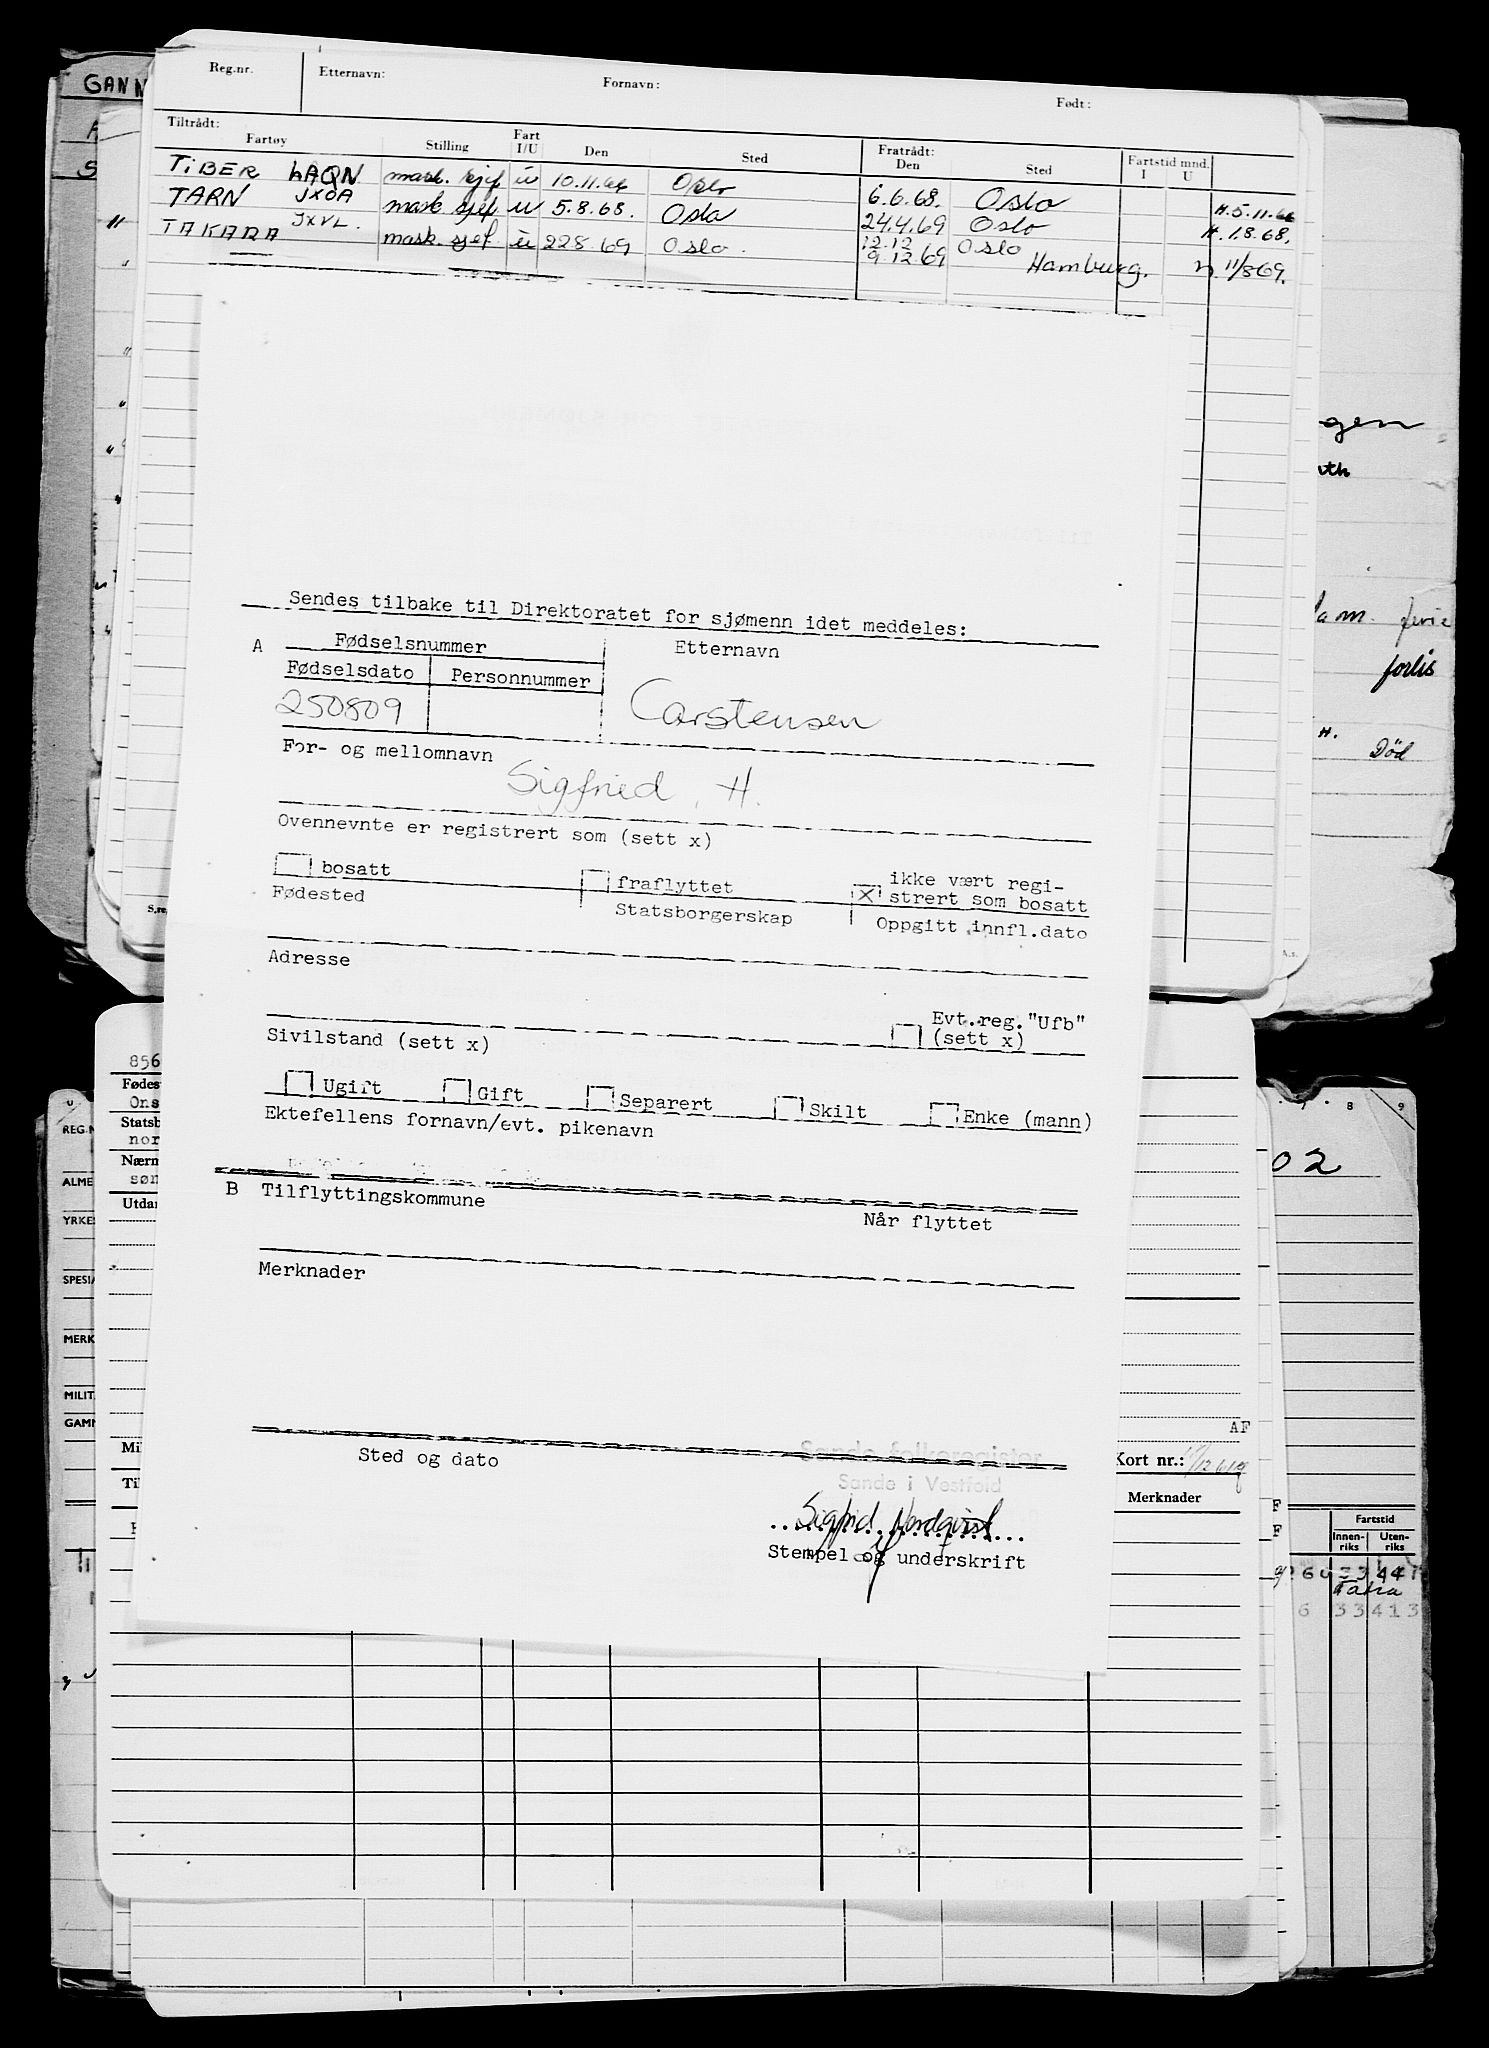 GANN
Reg.nr. Etternavn: Fornavn: Født:
Tiltrådt: Fratrådt:
Fartøy Stilling Fart I/U Den Sted Den Sted Fartstid mnd. I U
TIBER LAQN mask. sjef u 10.11.66 Oslo 6.6.68. Oslo H.5.11.66
TARN JXOA mask sjef u 5.8.68. Oslo 24.4.69 Oslo H.1.8.68.
TAKARA JXVL. mask. sjef u 22.8.69 Oslo. 12.12 Oslo
9.12.69 Hamburg. 11/8 69.
gen
forlis
Död
Sendes tilbake til Direktoratet for sjømenn idet meddeles:
A Fødselsnummer Etternavn
Fødselsdato Personnummer
250809 Carstensen
For- og mellomnavn
Sigfried, H.
Ovennevnte er registrert som (sett x)
bosatt fraflyttet x ikke vært regi-
strert som bosatt
Fødested Statsborgerskap Oppgitt innfl.dato
Adresse
Evt.reg."Ufb"
(sett x)
Sivilstand (sett x)
Ugift Gift Separert Skilt Enke (mann)
Ektefellens fornavn/evt. pikenavn
B Tilflyttingskommune Når flyttet
Merknader
Sted og dato
Sande folkeregister
Sande i Vestfold
Sigfrid Nordqvist
Stempel og underskrift
856
Fødes
Ons
Statsb
nor
Nærm
søn
Utdan
REG.N
ALME
YRKES
SPESIA
MERK
MILIT
GAMM
Mil
Til
02
AF
Kort nr.:
Merknader
Fartstid
Innen-
riks Uten-
riks
Tatra
6 33413